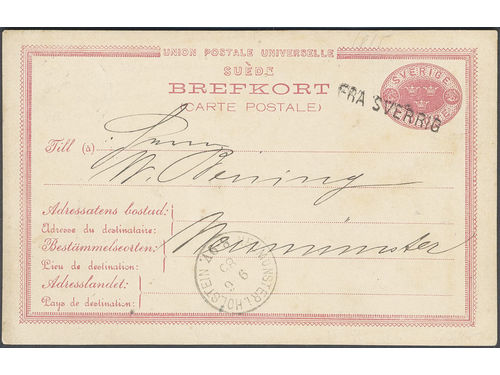 UNION POSTALE UNIVERSELLE
SUÈDE
BREFKORT
(CARTE POSTALE)
SVERIGE
FRA SVERRIG
Till (à)
Herrn
W. Bening
Adressatens bostad:
Adresse du destinataire:
Bestämmelseorten:
Neumünster
Lieu de destination:
Adresslandet:
Pays de destination: